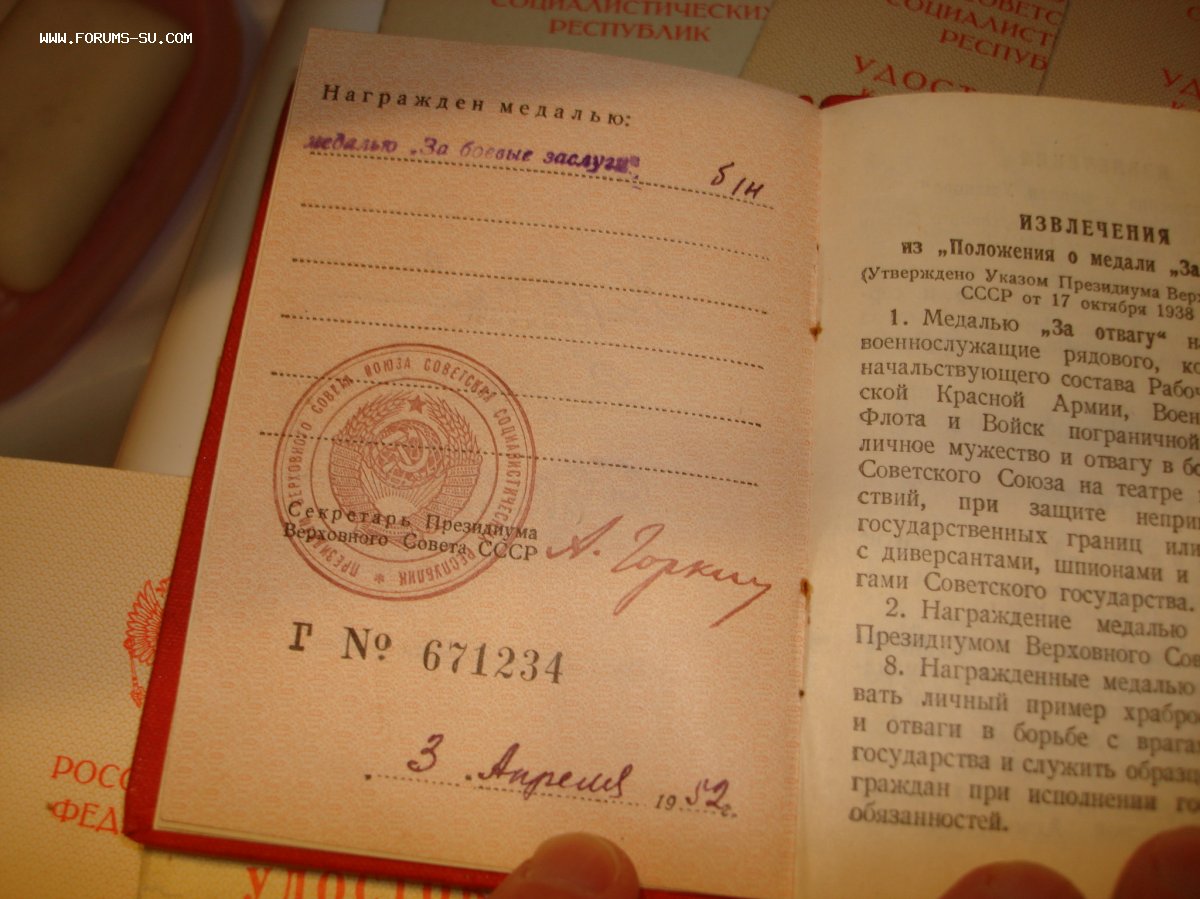 WWW.FORUMS-SU.COM
СОЦИАЛИСТИЧЕСКИХ
РЕСПУБЛИК
СОЦИАЛИСТ
РЕСПУБ
УДОСТ
Награжден медалью:
медалью „За боевые заслуги“ б/н
ПРЕЗИДИУМ ВЕРХОВНОГО СОВЕТА СОЮЗА СОВЕТСКИХ СОЦИАЛИСТИЧЕСКИХ РЕСПУБЛИК
Секретарь Президиума
Верховного Совета СССР А. Горкин
Г № 671234
3 Апреля 1952 г.
ИЗВЛЕЧЕНИЯ
из „Положения о медали „За
(Утверждено Указом Президиума Верх
СССР от 17 октября 1938
1. Медалью „За отвагу“ на
военнослужащие рядового, ко
начальствующего состава Рабоч
ской Красной Армии, Воен
Флота и Войск пограничной
личное мужество и отвагу в бо
Советского Союза на театре
ствий, при защите неприк
государственных границ или
с диверсантами, шпионами и
гами Советского государства.
2. Награждение медалью
Президиумом Верховного Сов
8. Награжденные медалью
вать личный пример храбро
и отваги в борьбе с врага
государства и служить образц
граждан при исполнении го
обязанностей.
РОСС
ФЕД
УДОСТ